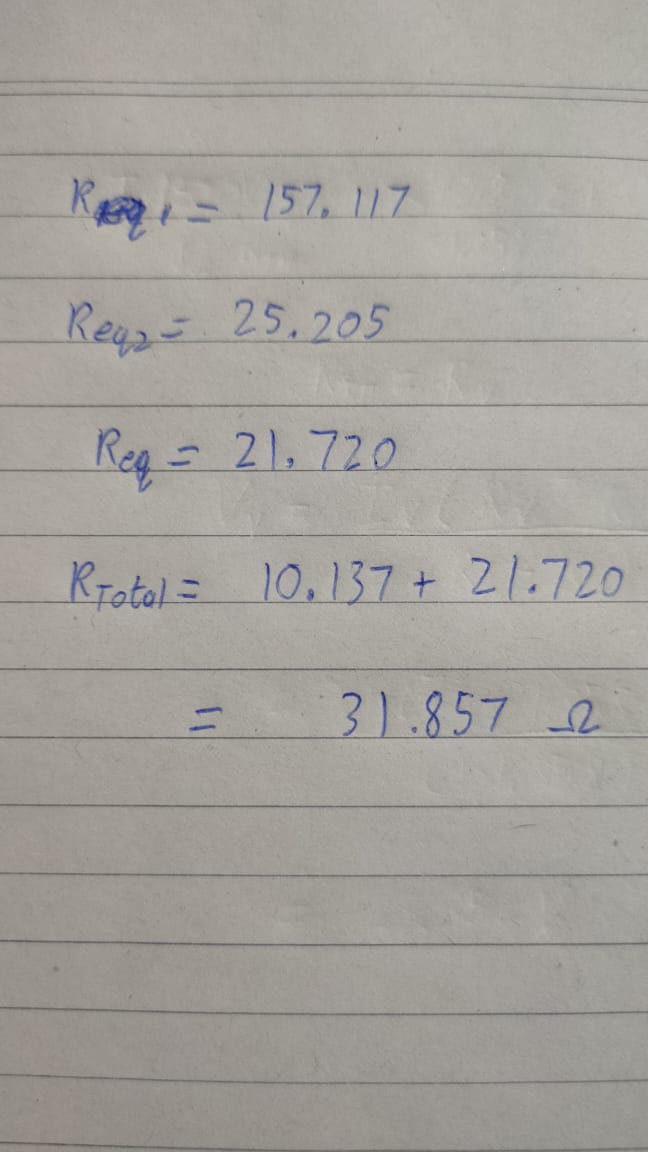 Req1 = 157.117
Req2 = 25.205
Req = 21.720
RTotal = 10.137 + 21.720
= 31.857 Ω